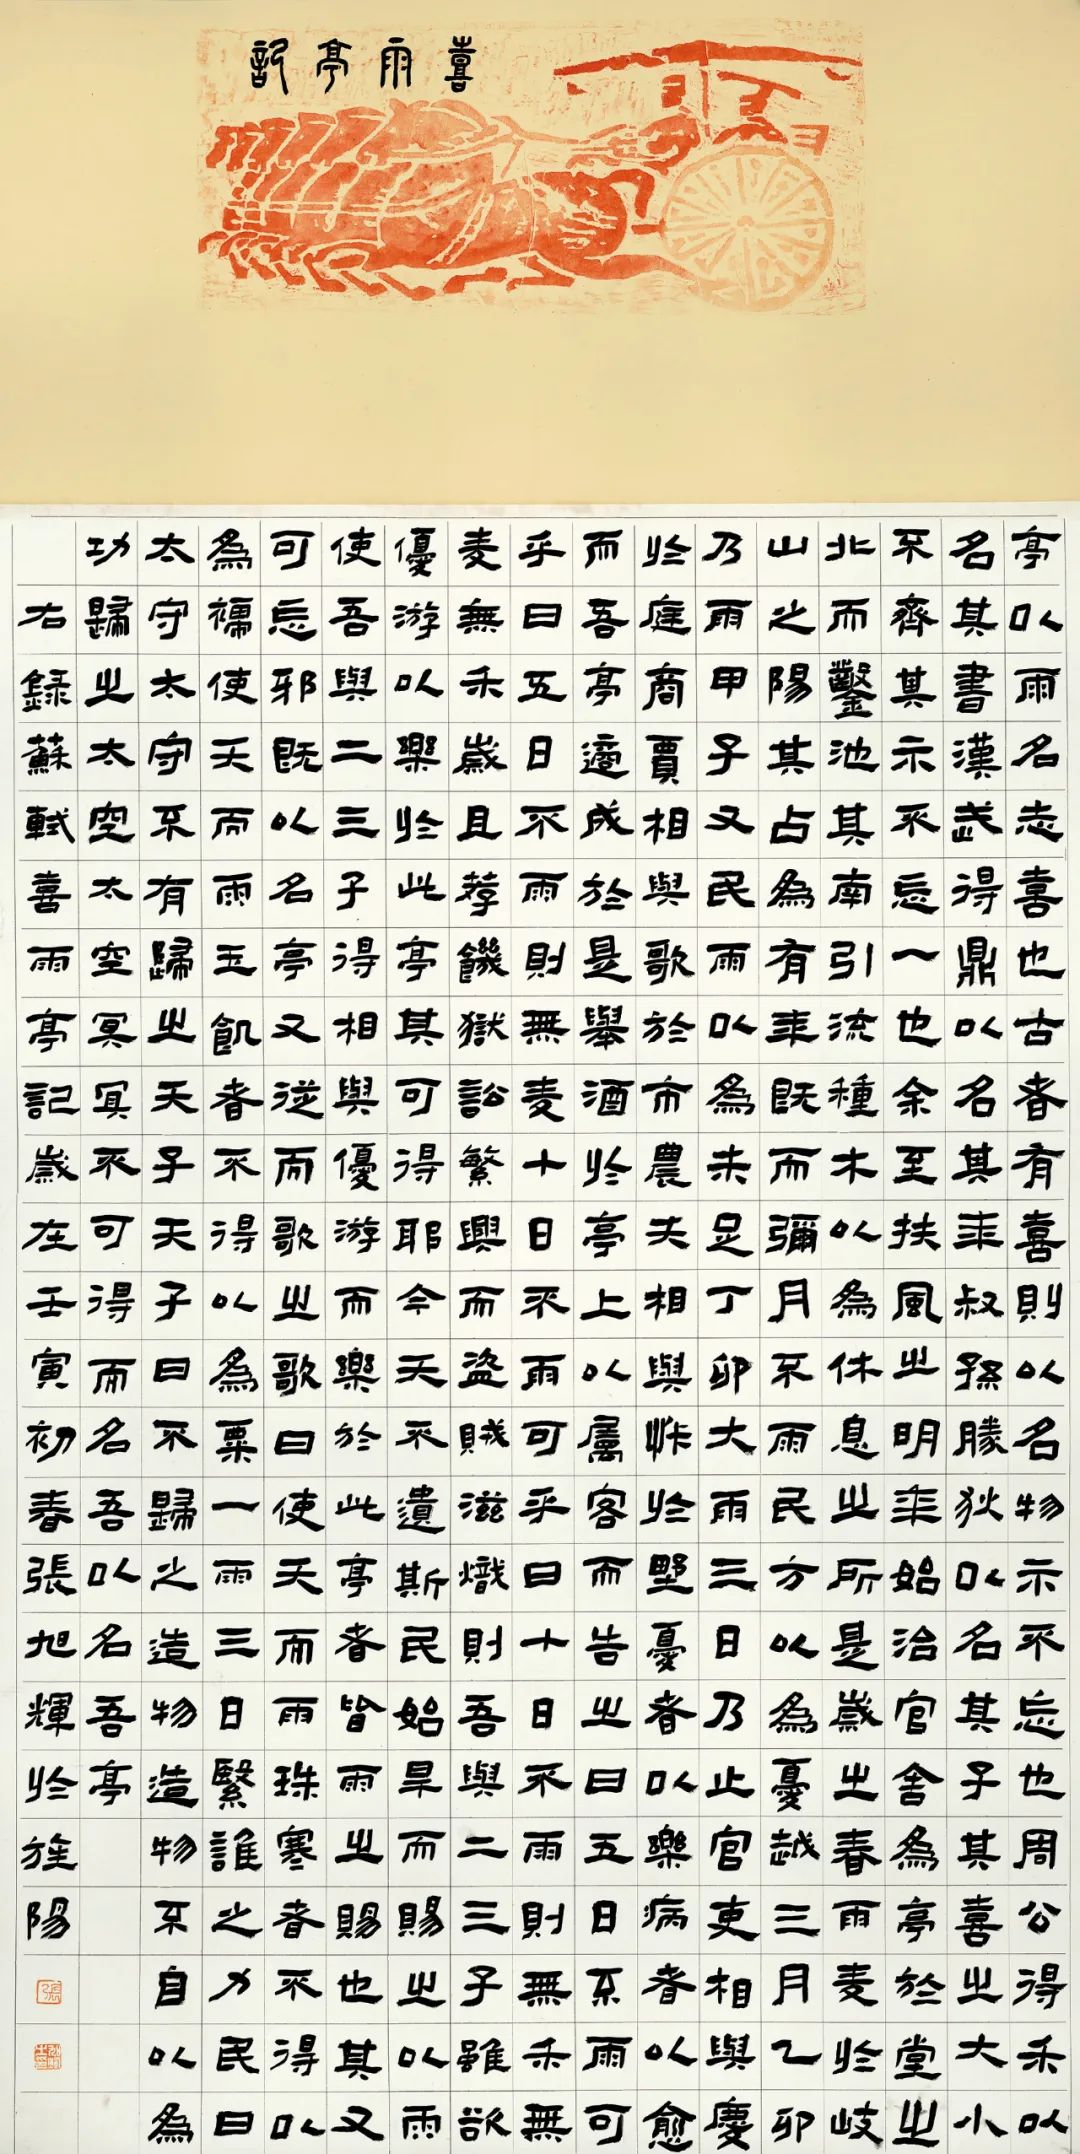 喜雨亭記
亭以雨名志喜也古者有喜則以名物示不忘也周公得禾以
名其書漢武得鼎以名其年叔孫勝狄以名其子其喜之大小
不齊其示不忘一也余至扶風之明年始治官舍為亭於堂之
北而鑿池其南引流種木以為休息之所是歲之春雨麦於岐
山之陽其占為有年既而彌月不雨民方以為憂越三月乙卯
乃雨甲子又民雨以為未足丁卯大雨三日乃止官吏相與慶
於庭商賈相與歌於市農夫相與忭於野憂者以樂病者以愈
而吾亭適成於是舉酒於亭上以屬客而告之曰五日不雨可
乎曰五日不雨則無麦十日不雨可乎曰十日不雨則無禾無
麦無禾歲且荐饑獄訟繁興而盜賊滋熾則吾與二三子雖欲
優游以樂於此亭其可得耶今天不遺斯民始旱而賜之以雨
使吾與二三子得相與優游而樂於此亭者皆雨之賜也其又
可忘邪既以名亭又從而歌之歌曰使天而雨珠寒者不得以
為襦使天而雨玉飢者不得以為粟一雨三日繄誰之力民曰
太守太守不有歸之天子天子曰不歸之造物造物不自以為
功歸之太空太空冥冥不可得而名吾以名吾亭
右錄蘇軾喜雨亭記歲在壬寅初春張旭輝於旌陽